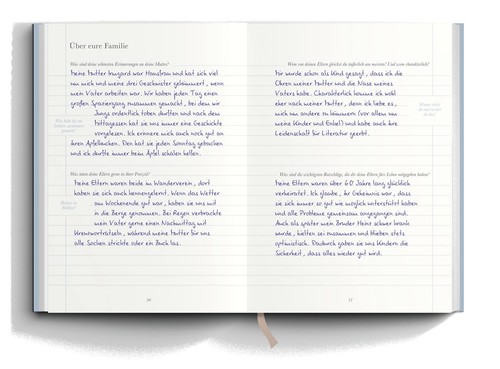 Über eure Familie
Was sind deine schönsten Erinnerungen an deine Mutter?
Meine Mutter Irmgard war Hausfrau und hat sich viel
um mich und meine drei Geschwister gekümmert, wenn
mein Vater arbeiten war. Wir haben jeden Tag einen
großen Spaziergang zusammen gemacht, bei dem wir
Jungs ordentlich toben durften und nach dem
Mittagessen hat sie uns immer eine Geschichte
vorgelesen. Ich erinnere mich auch noch gut an
ihren Apfelkuchen. Den hat sie jeden Sonntag gebacken
und ich durfte immer beim Äpfel schälen helfen.
Was taten deine Eltern gern in ihrer Freizeit?
Meine Eltern waren beide im Wanderverein, dort
haben sie sich auch kennengelernt. Wenn das Wetter
am Wochenende gut war, haben sie uns mit
in die Berge genommen. Bei Regen verbrachte
mein Vater gerne einen Nachmittag mit
Kreuzworträtseln, während meine Mutter für uns
alle Socken strickte oder ein Buch las.
Wem von deinen Eltern glichst du äußerlich am meisten? Und wem charakterlich?
Mir wurde schon als Kind gesagt, dass ich die
Ohren meiner Mutter und die Nase meines
Vaters habe. Charakterlich komme ich wohl
eher nach meiner Mutter, denn ich liebe es,
mich um andere zu kümmern (vor allem um
meine Kinder und Enkel) und habe auch ihre
Leidenschaft für Literatur geerbt.
Was sind die wichtigsten Ratschläge, die dir deine Eltern fürs Leben mitgegeben haben?
Meine Eltern waren über 60 Jahre lang glücklich
verheiratet. Ich glaube, ihr Geheimnis war, dass
sie sich immer so gut wie möglich unterstützt haben
und alle Probleme gemeinsam angegangen sind.
Auch als später mein Bruder Heinz schwer krank
wurde, hielten sie zusammen und blieben stets
optimistisch. Dadurch gaben sie uns Kindern die
Sicherheit, dass alles wieder gut wird.